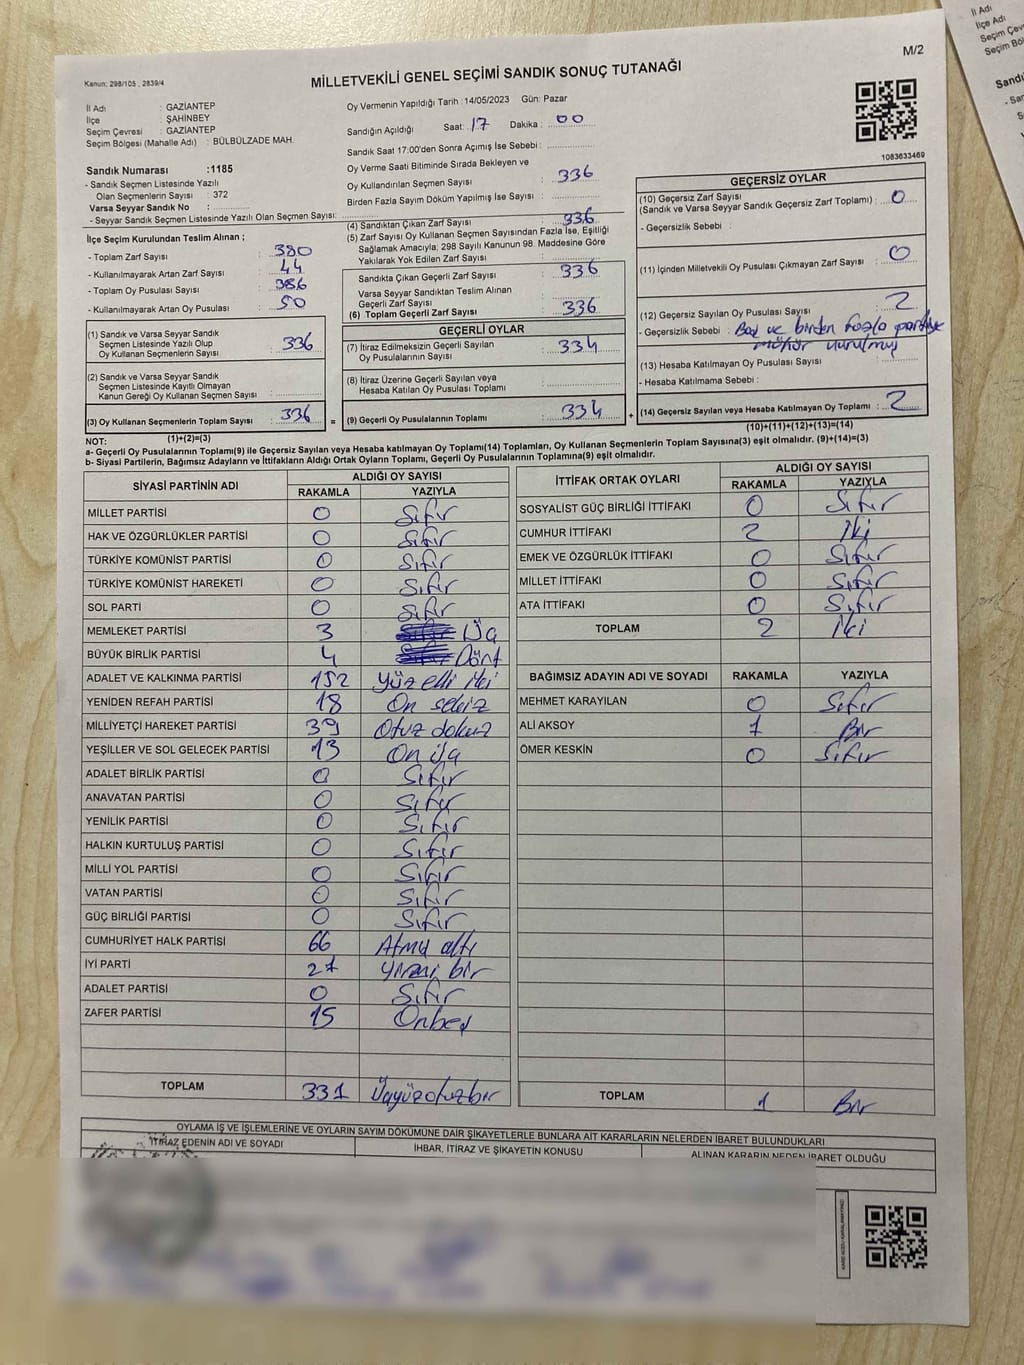 M/2
Kanun: 298/105 , 2839/4
MİLLETVEKİLİ GENEL SEÇİMİ SANDIK SONUÇ TUTANAĞI
İl Adı : GAZİANTEP
İlçe : ŞAHİNBEY
Seçim Çevresi : GAZİANTEP
Seçim Bölgesi (Mahalle Adı) : BÜLBÜLZADE MAH.
Sandık Numarası :1185
- Sandık Seçmen Listesinde Yazılı
Olan Seçmenlerin Sayısı : 372
Varsa Seyyar Sandık No :
- Seyyar Sandık Seçmen Listesinde Yazılı Olan Seçmen Sayısı:
İlçe Seçim Kurulundan Teslim Alınan ;
- Toplam Zarf Sayısı : 380
- Kullanılmayarak Artan Zarf Sayısı : 44
- Toplam Oy Pusulası Sayısı : 386
- Kullanılmayarak Artan Oy Pusulası : 50
(1) Sandık ve Varsa Seyyar Sandık
Seçmen Listesinde Yazılı Olup
Oy Kullanan Seçmenlerin Sayısı : 336
(2) Sandık ve Varsa Seyyar Sandık
Seçmen Listesinde Kayıtlı Olmayan
Kanun Gereği Oy Kullanan Seçmen Sayısı :
(3) Oy Kullanan Seçmenlerin Toplam Sayısı : 336
(1)+(2)=(3)
Oy Vermenin Yapıldığı Tarih :14/05/2023 Gün: Pazar
Sandığın Açıldığı Saat: 17 Dakika : 00
Sandık Saat 17:00'den Sonra Açımış İse Sebebi :
Oy Verme Saati Bitiminde Sırada Bekleyen ve
Oy Kullandırılan Seçmen Sayısı : 336
Birden Fazla Sayım Döküm Yapılmış İse Sayısı :
(4) Sandıktan Çıkan Zarf Sayısı : 336
(5) Zarf Sayısı Oy Kullanan Seçmen Sayısından Fazla İse, Eşitliği
Sağlamak Amacıyla; 298 Sayılı Kanunun 98. Maddesine Göre
Yakılarak Yok Edilen Zarf Sayısı :
Sandıkta Çıkan Geçerli Zarf Sayısı : 336
Varsa Seyyar Sandıktan Teslim Alınan
Geçerli Zarf Sayısı :
(6) Toplam Geçerli Zarf Sayısı : 336
GEÇERLİ OYLAR
(7) İtiraz Edilmeksizin Geçerli Sayılan
Oy Pusulalarının Sayısı : 334
(8) İtiraz Üzerine Geçerli Sayılan veya
Hesaba Katılan Oy Pusulası Toplamı :
= (9) Geçerli Oy Pusulalarının Toplamı : 334 +
1083633469
GEÇERSİZ OYLAR
(10) Geçersiz Zarf Sayısı
(Sandık ve Varsa Seyyar Sandık Geçersiz Zarf Toplamı) : 0
- Geçersizlik Sebebi :
(11) İçinden Milletvekili Oy Pusulası Çıkmayan Zarf Sayısı : 0
(12) Geçersiz Sayılan Oy Pusulası Sayısı : 2
- Geçersizlik Sebebi : Boş ve birden fazla partiye
mühür vurulmuş
(13) Hesaba Katılmayan Oy Pusulası Sayısı :
- Hesaba Katılmama Sebebi :
(14) Geçersiz Sayılan veya Hesaba Katılmayan Oy Toplamı : 2
(10)+(11)+(12)+(13)=(14)
NOT:
a- Geçerli Oy Pusulalarının Toplamı(9) ile Geçersiz Sayılan veya Hesaba katılmayan Oy Toplamı(14) Toplamları, Oy Kullanan Seçmenlerin Toplam Sayısına(3) eşit olmalıdır. (9)+(14)=(3)
b- Siyasi Partilerin, Bağımsız Adayların ve İttifakların Aldığı Ortak Oyların Toplamı, Geçerli Oy Pusulalarının Toplamına(9) eşit olmalıdır.
SİYASİ PARTİNİN ADI ALDIĞI OY SAYISI
RAKAMLA YAZIYLA
MİLLET PARTİSİ 0 Sıfır
HAK VE ÖZGÜRLÜKLER PARTİSİ 0 Sıfır
TÜRKİYE KOMÜNİST PARTİSİ 0 Sıfır
TÜRKİYE KOMÜNİST HAREKETİ 0 Sıfır
SOL PARTİ 0 Sıfır
MEMLEKET PARTİSİ 3 Üç
BÜYÜK BİRLİK PARTİSİ 4 Dört
ADALET VE KALKINMA PARTİSİ 152 Yüz elli iki
YENİDEN REFAH PARTİSİ 18 On sekiz
MİLLİYETÇİ HAREKET PARTİSİ 39 Otuz dokuz
YEŞİLLER VE SOL GELECEK PARTİSİ 13 On üç
ADALET BİRLİK PARTİSİ 0 Sıfır
ANAVATAN PARTİSİ 0 Sıfır
YENİLİK PARTİSİ 0 Sıfır
HALKIN KURTULUŞ PARTİSİ 0 Sıfır
MİLLİ YOL PARTİSİ 0 Sıfır
VATAN PARTİSİ 0 Sıfır
GÜÇ BİRLİĞİ PARTİSİ 0 Sıfır
CUMHURİYET HALK PARTİSİ 66 Atmış altı
İYİ PARTİ 21 Yirmi bir
ADALET PARTİSİ 0 Sıfır
ZAFER PARTİSİ 15 Onbeş
TOPLAM 331 Üçyüzotuzbir
İTTİFAK ORTAK OYLARI ALDIĞI OY SAYISI
RAKAMLA YAZIYLA
SOSYALİST GÜÇ BİRLİĞİ İTTİFAKI 0 Sıfır
CUMHUR İTTİFAKI 2 İki
EMEK VE ÖZGÜRLÜK İTTİFAKI 0 Sıfır
MİLLET İTTİFAKI 0 Sıfır
ATA İTTİFAKI 0 Sıfır
TOPLAM 2 İki
BAĞIMSIZ ADAYIN ADI VE SOYADI RAKAMLA YAZIYLA
MEHMET KARAYILAN 0 Sıfır
ALİ AKSOY 1 Bir
ÖMER KESKİN 0 Sıfır
TOPLAM 1 Bir
OYLAMA İŞ VE İŞLEMLERİNE VE OYLARIN SAYIM DÖKÜMÜNE DAİR ŞİKAYETLERLE BUNLARA AİT KARARLARIN NELERDEN İBARET BULUNDUKLARI
İTİRAZ EDENİN ADI VE SOYADI İHBAR, İTİRAZ VE ŞİKAYETİN KONUSU ALINAN KARARIN NEDEN İBARET OLDUĞU
İl Adı
İlçe Adı
Seçim Çevr
Seçim Böl
Sandı